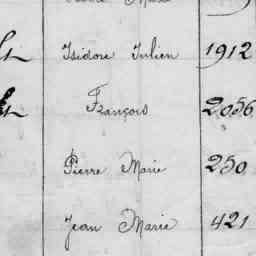 Marie
Isidore Julien 1912
François 2056
Pierre Marie 250
Jean Marie 421